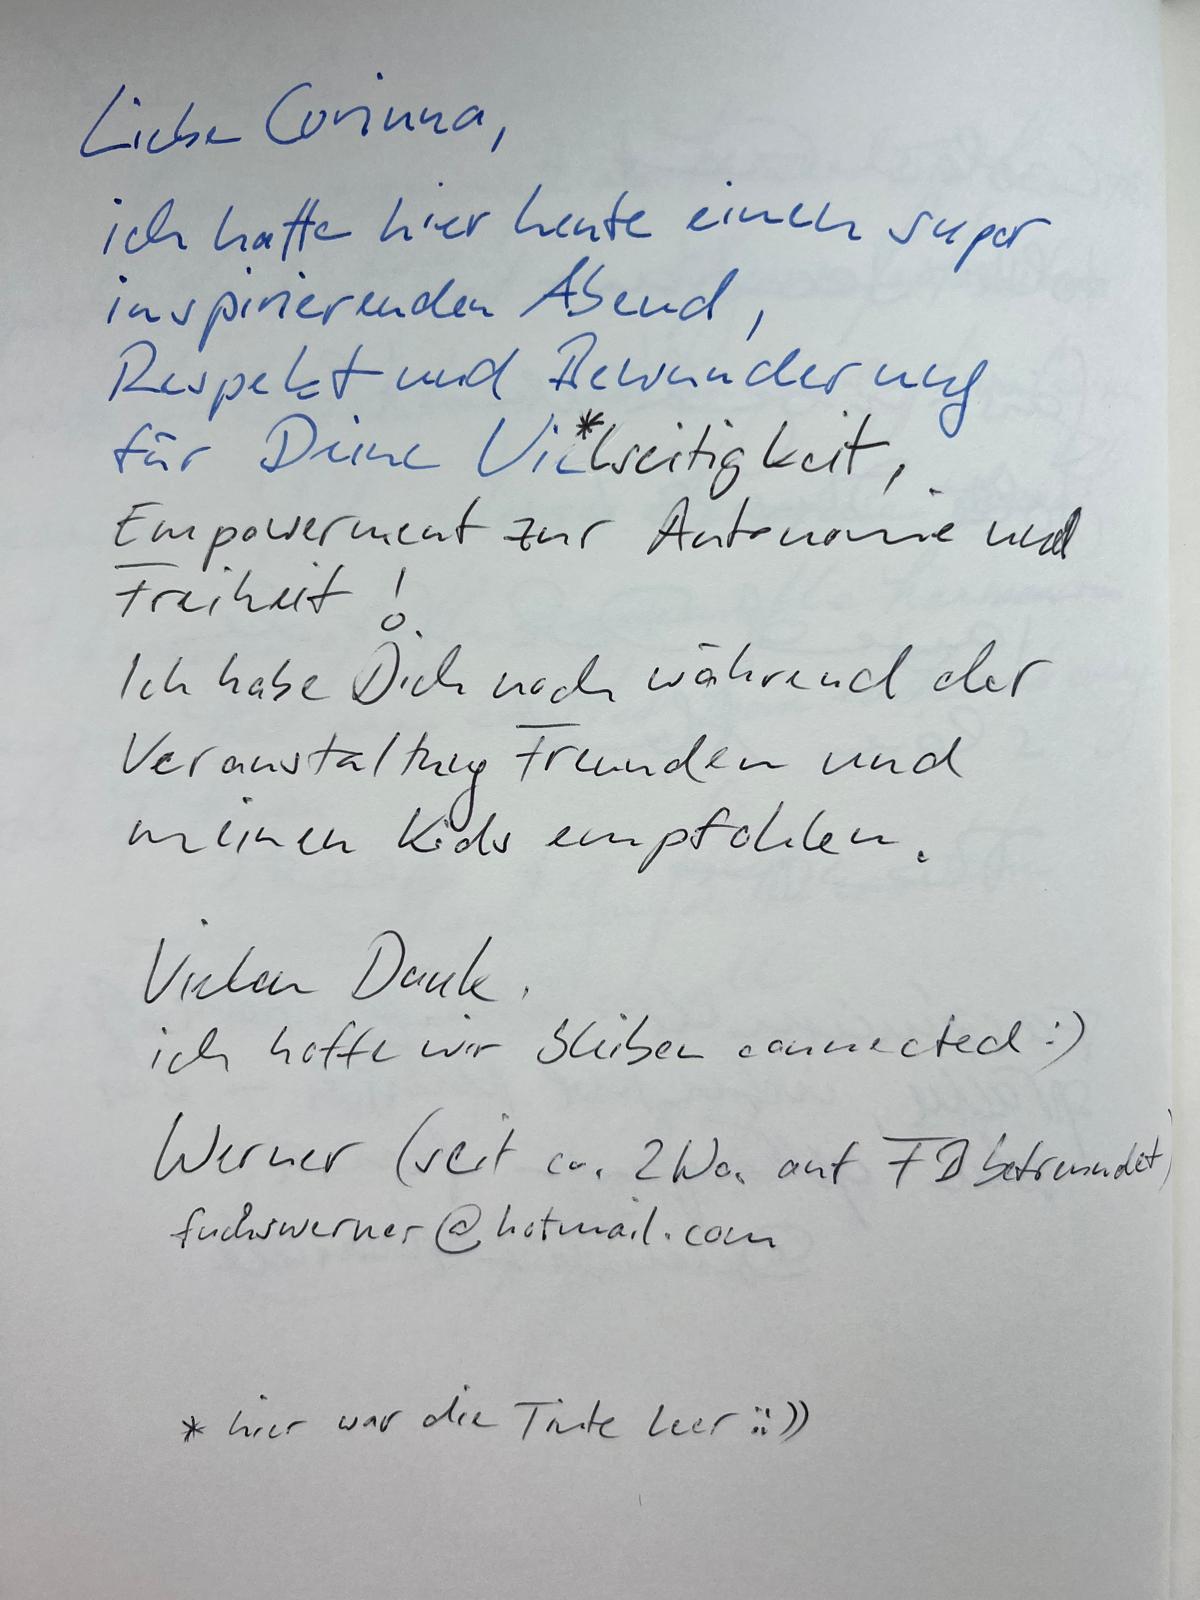 Liebe Corinna,
ich hatte hier heute einen super
inspirierenden Abend,
Respekt und Bewunderung
für Deine Viel*seitigkeit,
Empowerment zur Autonomie und
Freiheit!
Ich habe Dich noch während der
Veranstaltung Freunden und
meinen Kids empfohlen.
Vielen Dank.
ich hoffe wir bleiben connected :)
Werner (seit ca. 2 Wo. auf FB befreundet)
fuchswerner@hotmail.com
* hier war die Tinte leer ::))